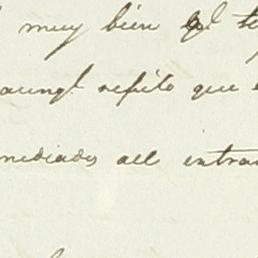 muy bien
aunq.e repito que
mediados del entran